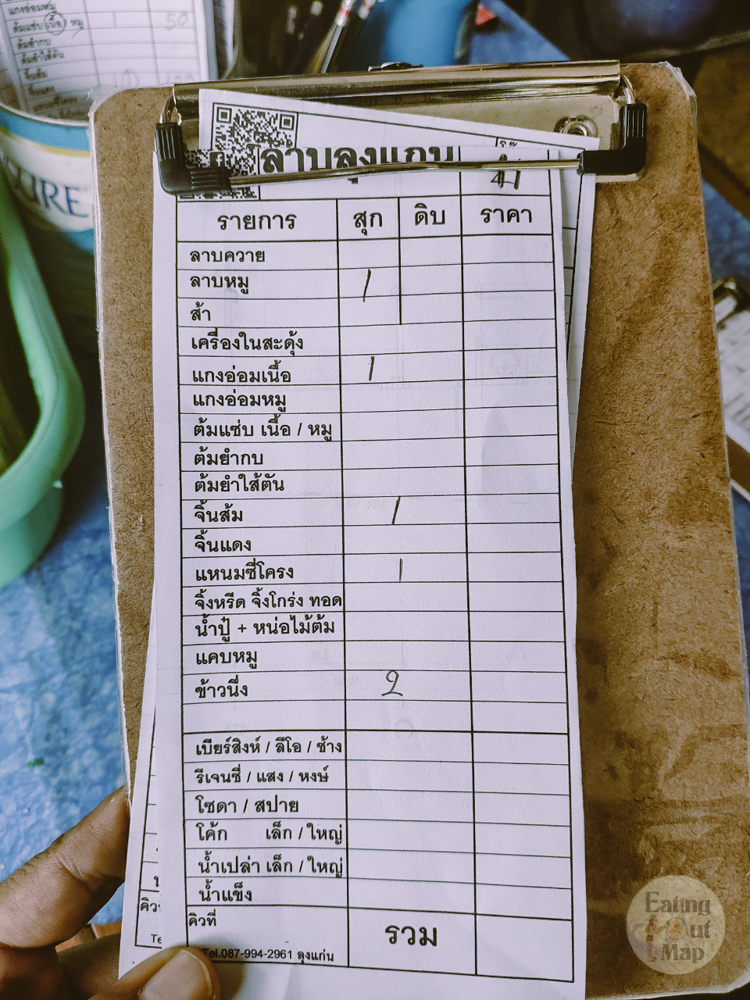 แกงอ่อมหมู
ต้มแซ่บ เนื้อ หมู 50
ต้มยำกบ
ต้มยำไส้ตัน
จิ้นส้ม
จิ้นแดง
URE
ลาบลุงแก่น
โต๊ะ 41
รายการ สุก ดิบ ราคา
ลาบควาย
ลาบหมู /
ส้า
เครื่องในสะดุ้ง
แกงอ่อมเนื้อ 1
แกงอ่อมหมู
ต้มแซ่บ เนื้อ / หมู
ต้มยำกบ
ต้มยำไส้ตัน
จิ้นส้ม /
จิ้นแดง
แหนมซี่โครง 1
จิ้งหรีด จิ้งโกร่ง ทอด
น้ำปู๋ + หน่อไม้ต้ม
แคบหมู
ข้าวนึ่ง 2
เบียร์สิงห์ / ลีโอ / ช้าง
รีเจนซี่ / แสง / หงษ์
โซดา / สปาย
โค้ก เล็ก / ใหญ่
น้ำเปล่า เล็ก / ใหญ่
น้ำแข็ง
คิวที่ รวม
Tel.087-994-2961 ลุงแก่น
คิว
Te
Eating
Out
Map